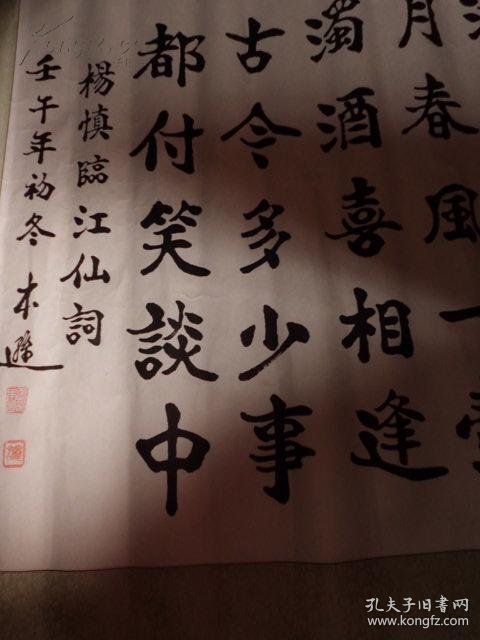 月春風一壺
濁酒喜相逢
古今多少事
都付笑談中
楊慎臨江仙詞
壬午年初冬 本
孔夫子旧书网
www.kongfz.com